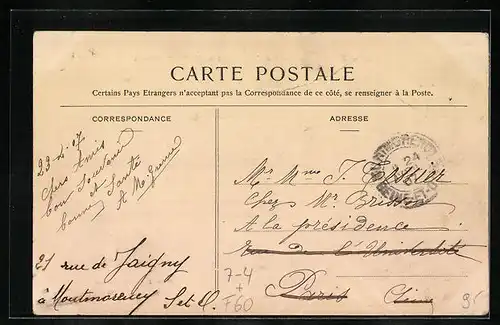 CARTE POSTALE
Certains Pays Etrangers n'acceptant pas la Correspondance de ce côté, se renseigner à la Poste.
CORRESPONDANCE
ADRESSE
23-4-07
Chers Amis
bon Souvenir
et
bonne Santé
21 rue de Jaigny
à Montmorency S et O.
Mr Mme J. Tessier
Chez Mr Brisson
A la présidence
rue de l'Université
Paris
7-4
+
F60
MONTMORENCY
24